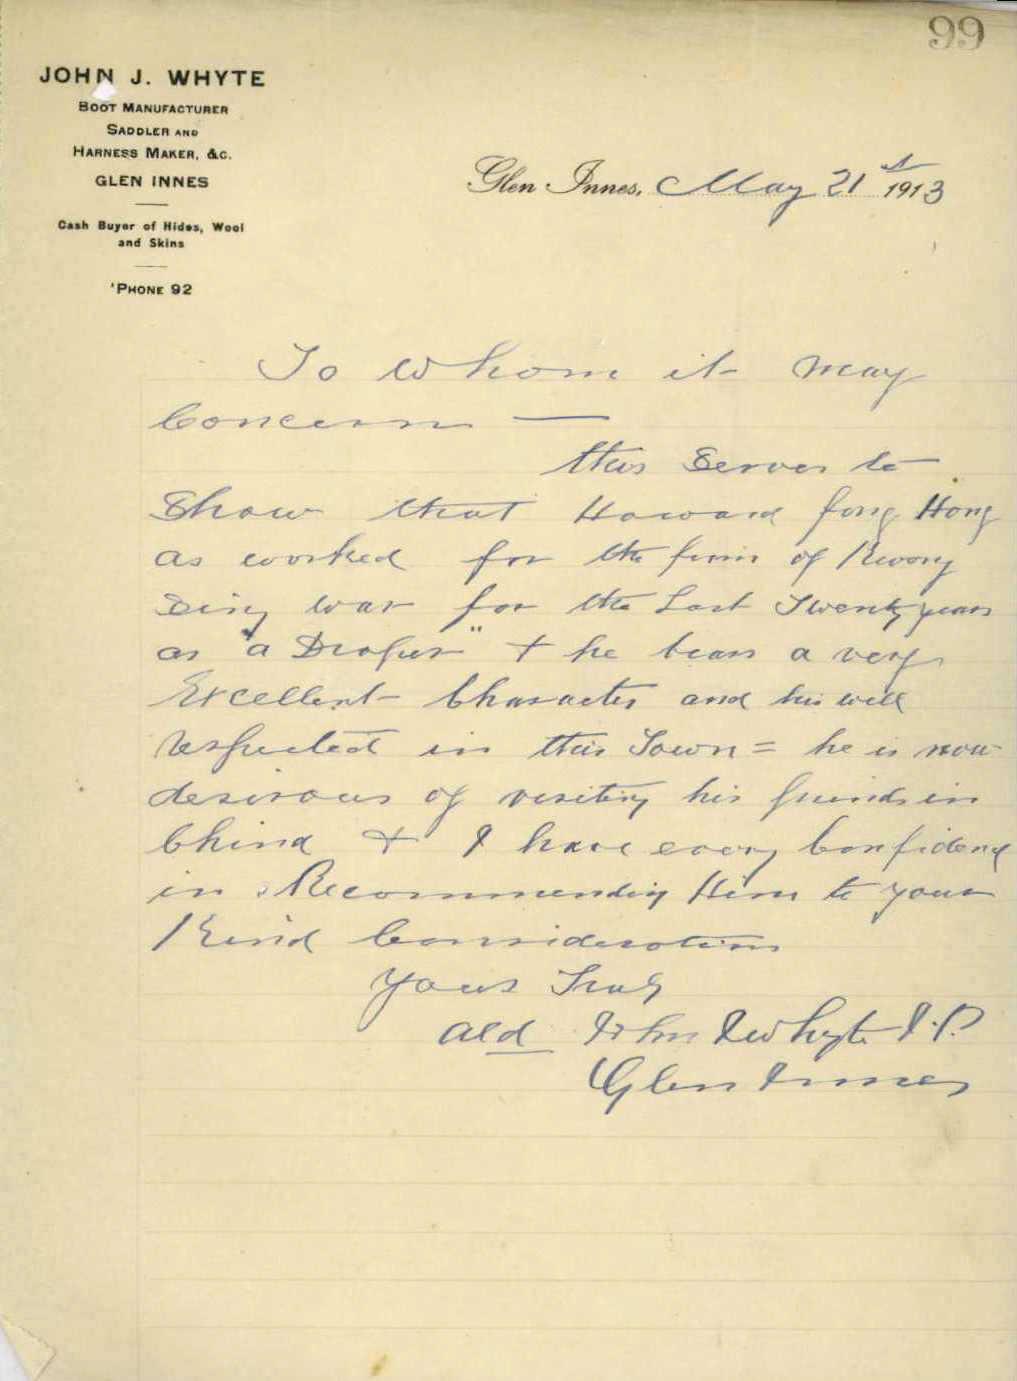 99
JOHN J. WHYTE
BOOT MANUFACTURER
SADDLER AND
HARNESS MAKER, &C.
GLEN INNES
Cash Buyer of Hides, Wool
and Skins
'PHONE 92
Glen Innes, May 21st 1913
To whom it may
Concern —
this serves to
Show that Howard fong Hong
as worked for the firm of Kwong
Sing war for the Last Twenty years
as "a Draper" + he bears a very
Excellent Character and his well
respected in this Town = he is now
desirous of visiting his friends in
China + I have every Confidence
in Recommending Him to your
Kind Consideration
yours Truly
Ald John J Whyte J.P.
Glen Innes